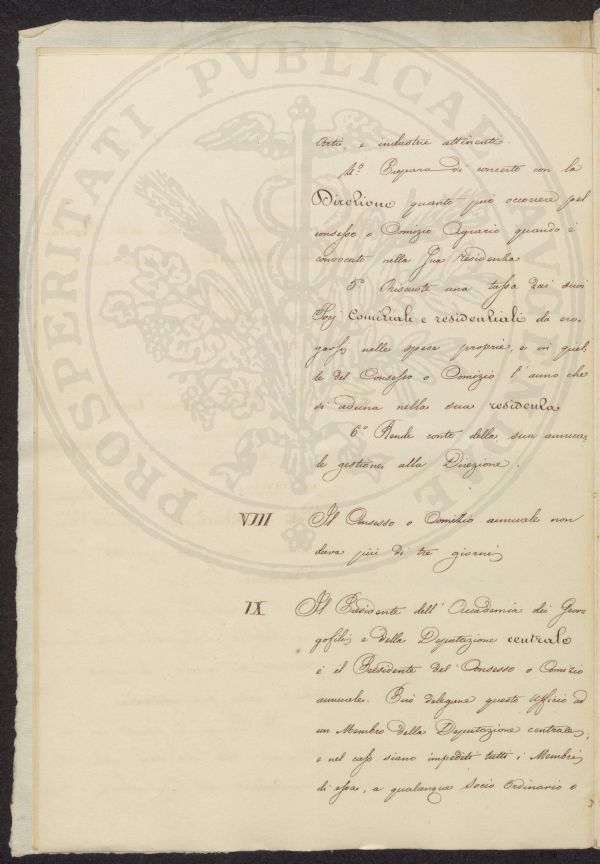 Arti, e industrie attinenti.
4.º Prepara di concerto con la
Direzione quanto può occorrere pel
consesso o Comizio Agrario quando è
convocato nella sua residenza
5º Riscuote una tassa dai suoi
Socj Comiziali e residenziali da ero-
garsi nelle spese proprie, e in quel-
le del Consesso o Comizio l'anno che
si aduna nella sua residenza
6º Rende conto della sua annua-
le gestione alla Direzione.
VIII Il Consesso o Comizio annuale non
dura più di tre giorni
IX Il Presidente dell'Accademia dei Geor-
gofili e della Deputazione centrale
è il Presidente del Consesso o Comizio
annuale. Può delegare questo Ufficio ad
un Membro della Deputazione centrale,
e nel caso siano impediti tutti i Membri
di essa, a qualunque Socio Ordinario o
PROSPERITATI PVBLICAE AVGENDAE